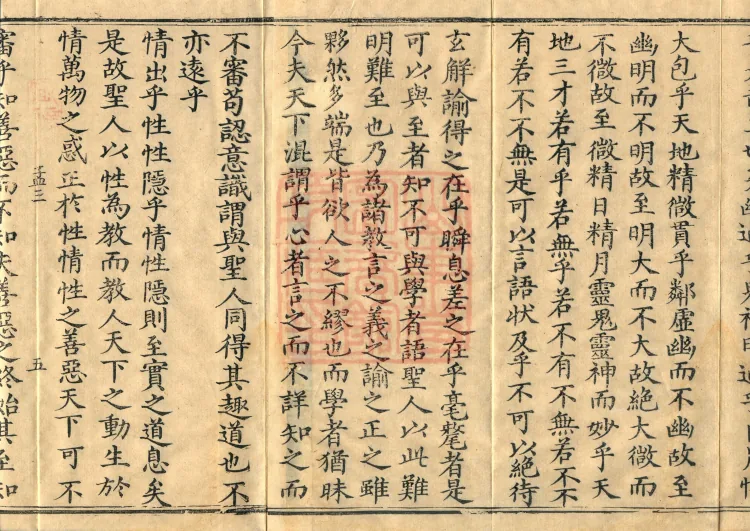 大包乎天地精微貫乎鄰虛幽而不幽故至
幽明而不明故至明大而不大故絕大微而
不微故至微精日精月靈鬼靈神而妙乎天
地三才若有乎若無乎若不有不無若不不
有若不不無是可以言語狀及乎不可以絕待
玄解諭得之在乎瞬息差之在乎毫釐者是
可以與至者知不可與學者語聖人以此難
明難至也乃為諸教言之義之諭之正之雖
夥然多端是皆欲人之不繆也而學者猶昧
今夫天下混謂乎心者言之而不詳知之而
不審苟認意識謂與聖人同得其趣道也不
亦遠乎
情出乎性性隱乎情性隱則至實之道息矣
是故聖人以性為教而教人天下之動生於
情萬物之惑正於性情性之善惡天下可不
孟三 五
審乎知善惡而不知夫善惡之終始其至知